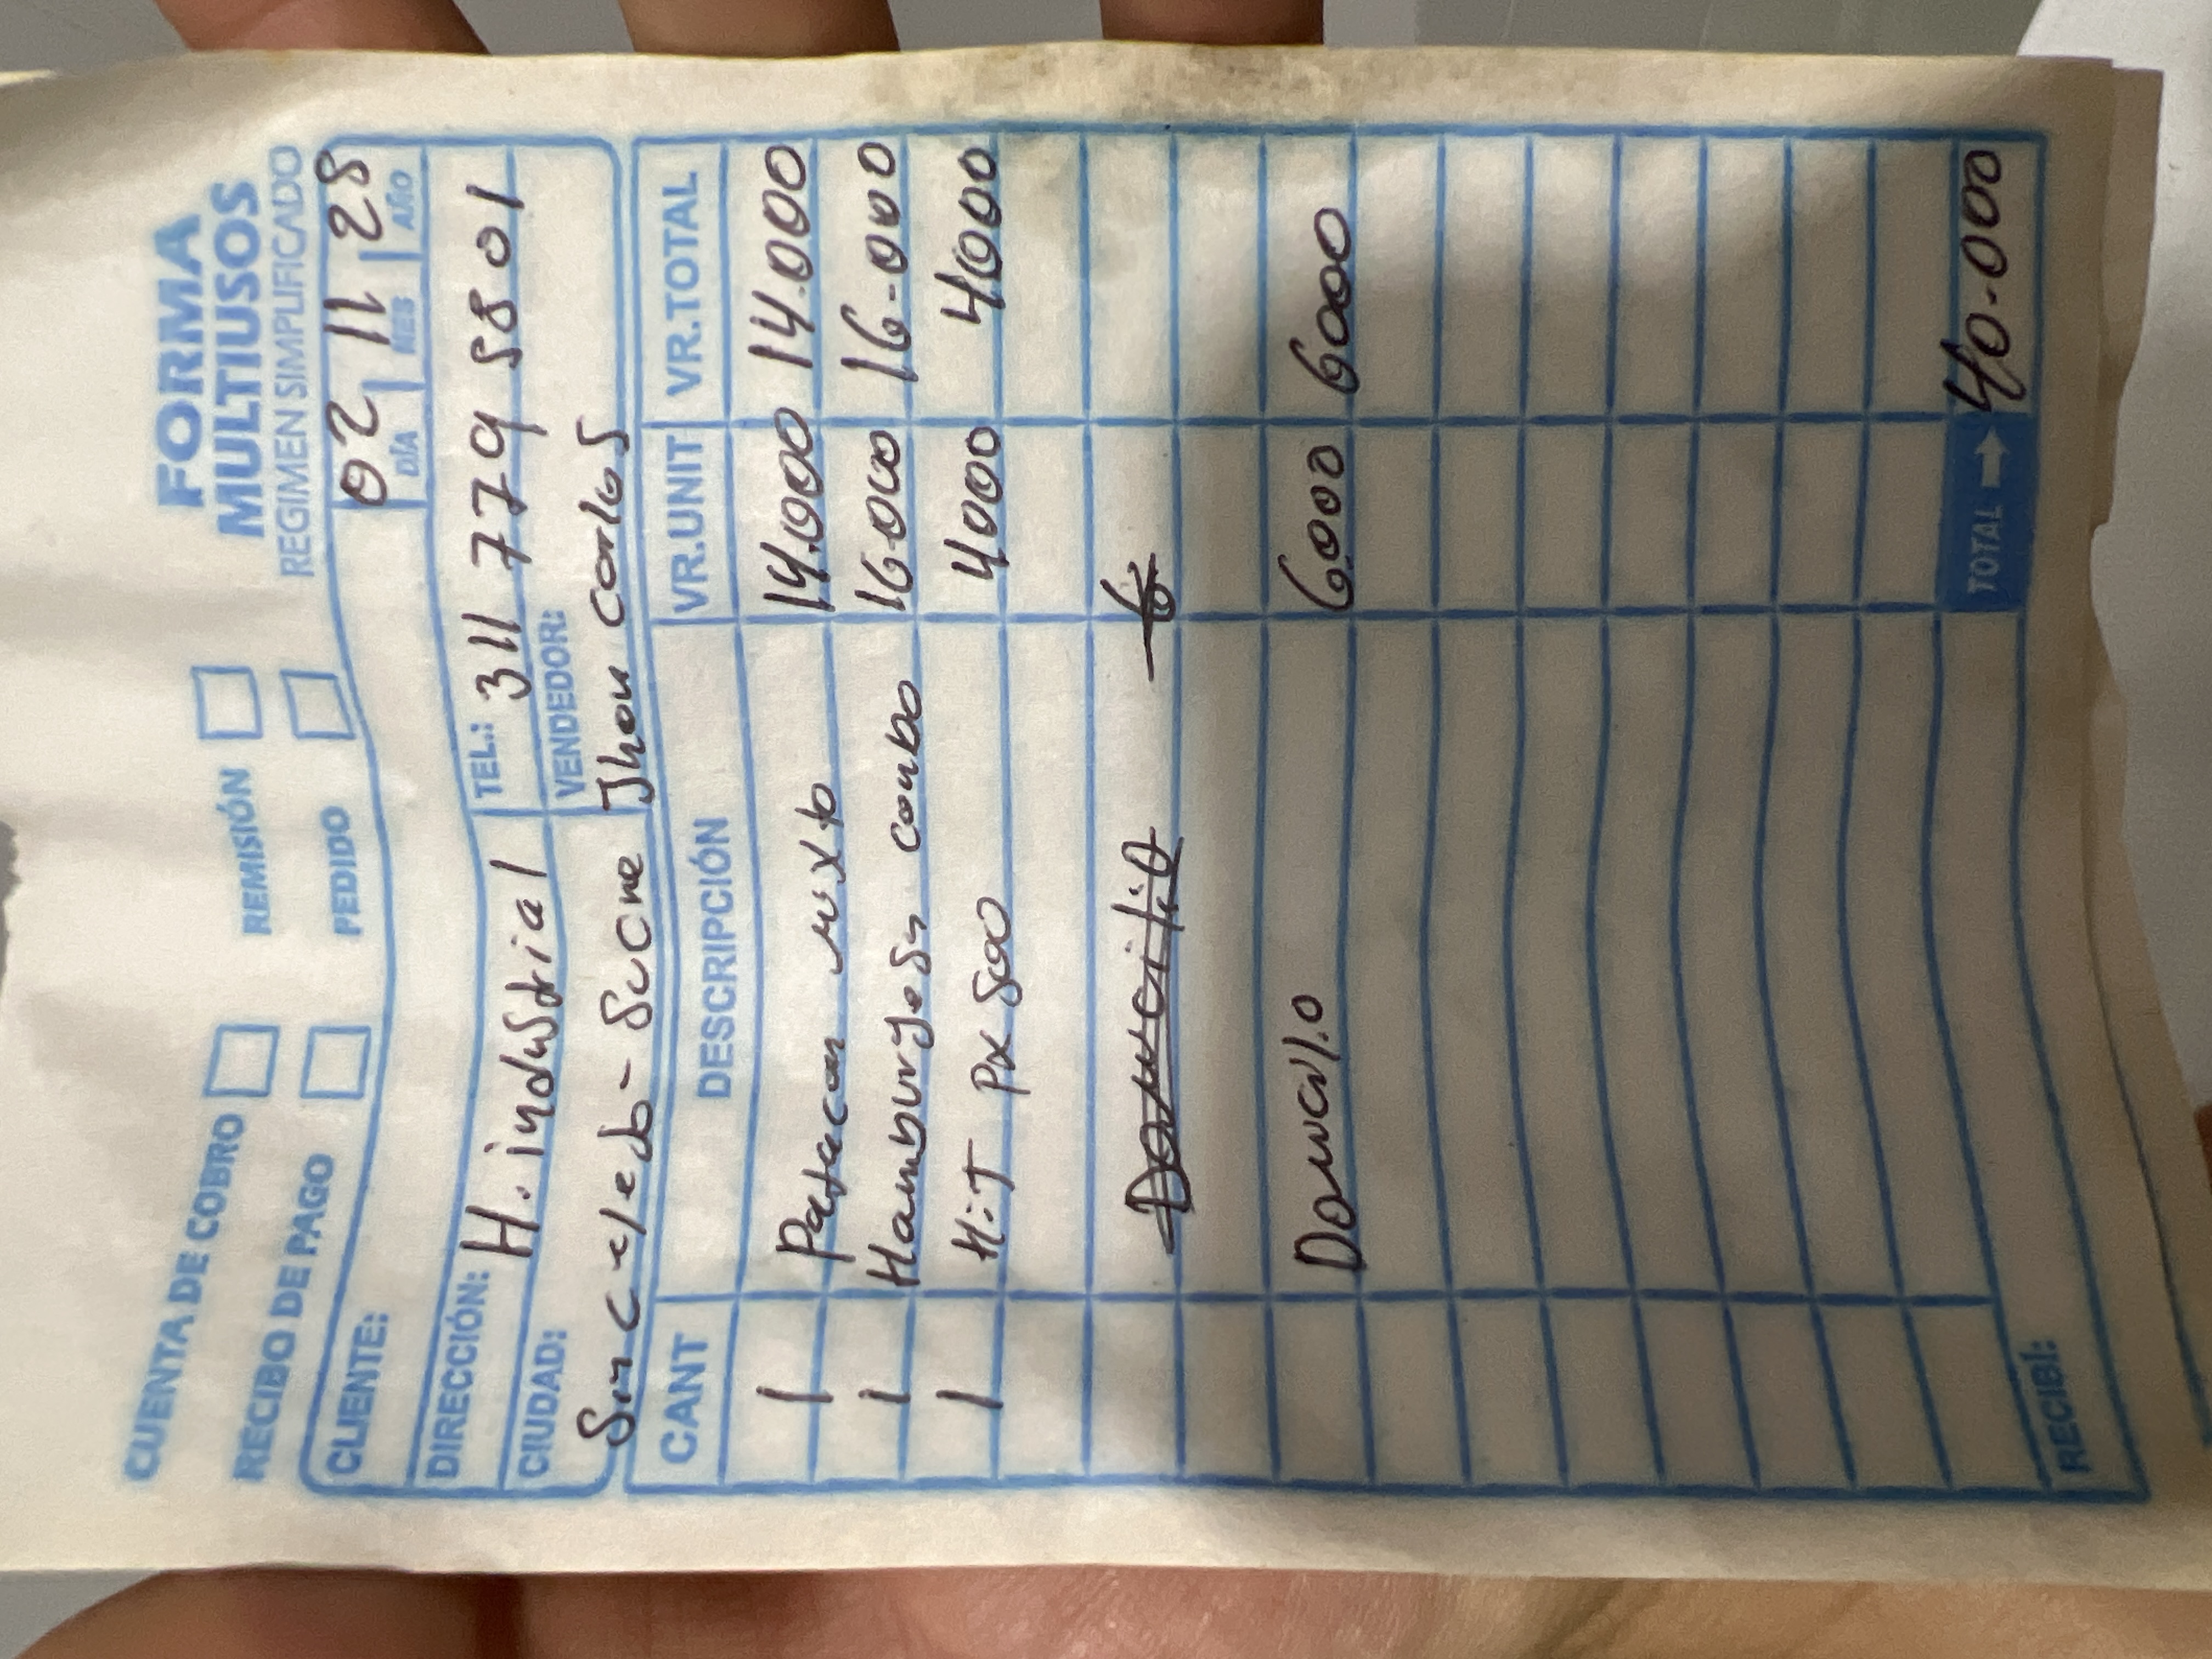 FORMA
MULTIUSOS
REGIMEN SIMPLIFICADO
CUENTA DE COBRO REMISIÓN
RECIBO DE PAGO PEDIDO
02 11 28
DÍA MES AÑO
CLIENTE:
DIRECCIÓN: H. industrial TEL.: 311 779 5801
CIUDAD: Sincelejo - Sucre VENDEDOR: Jhon carlos
CANT DESCRIPCIÓN VR.UNIT VR.TOTAL
1 Patacon mixto 14.000 14.000
1 Hamburguesa combo 16000 16.000
1 HiT Px 500 4000 4000
Domicilio 6
Domicilio 6.000 6000
TOTAL 40.000
RECIBÍ: